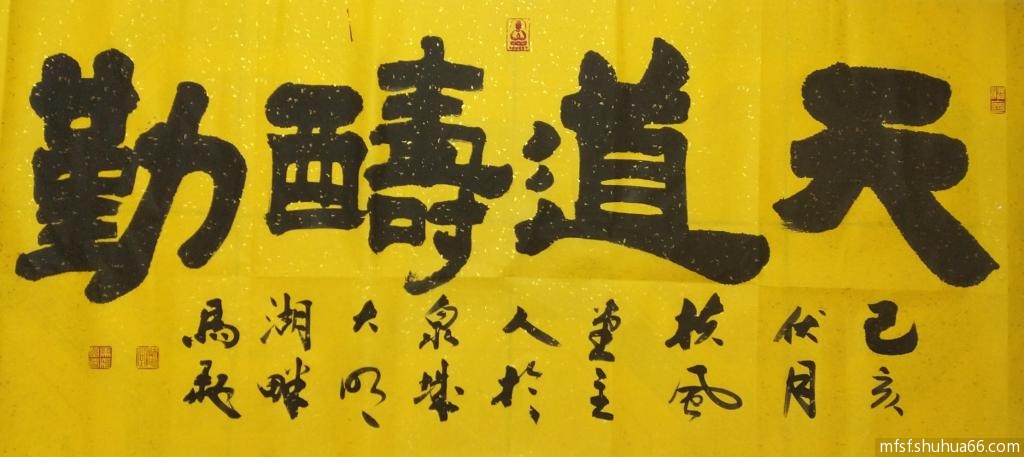 天道酬勤
己亥
伏月
扶風
堂主
人於
泉城
大明
湖畔
馬
mfsf.shuhua66.com